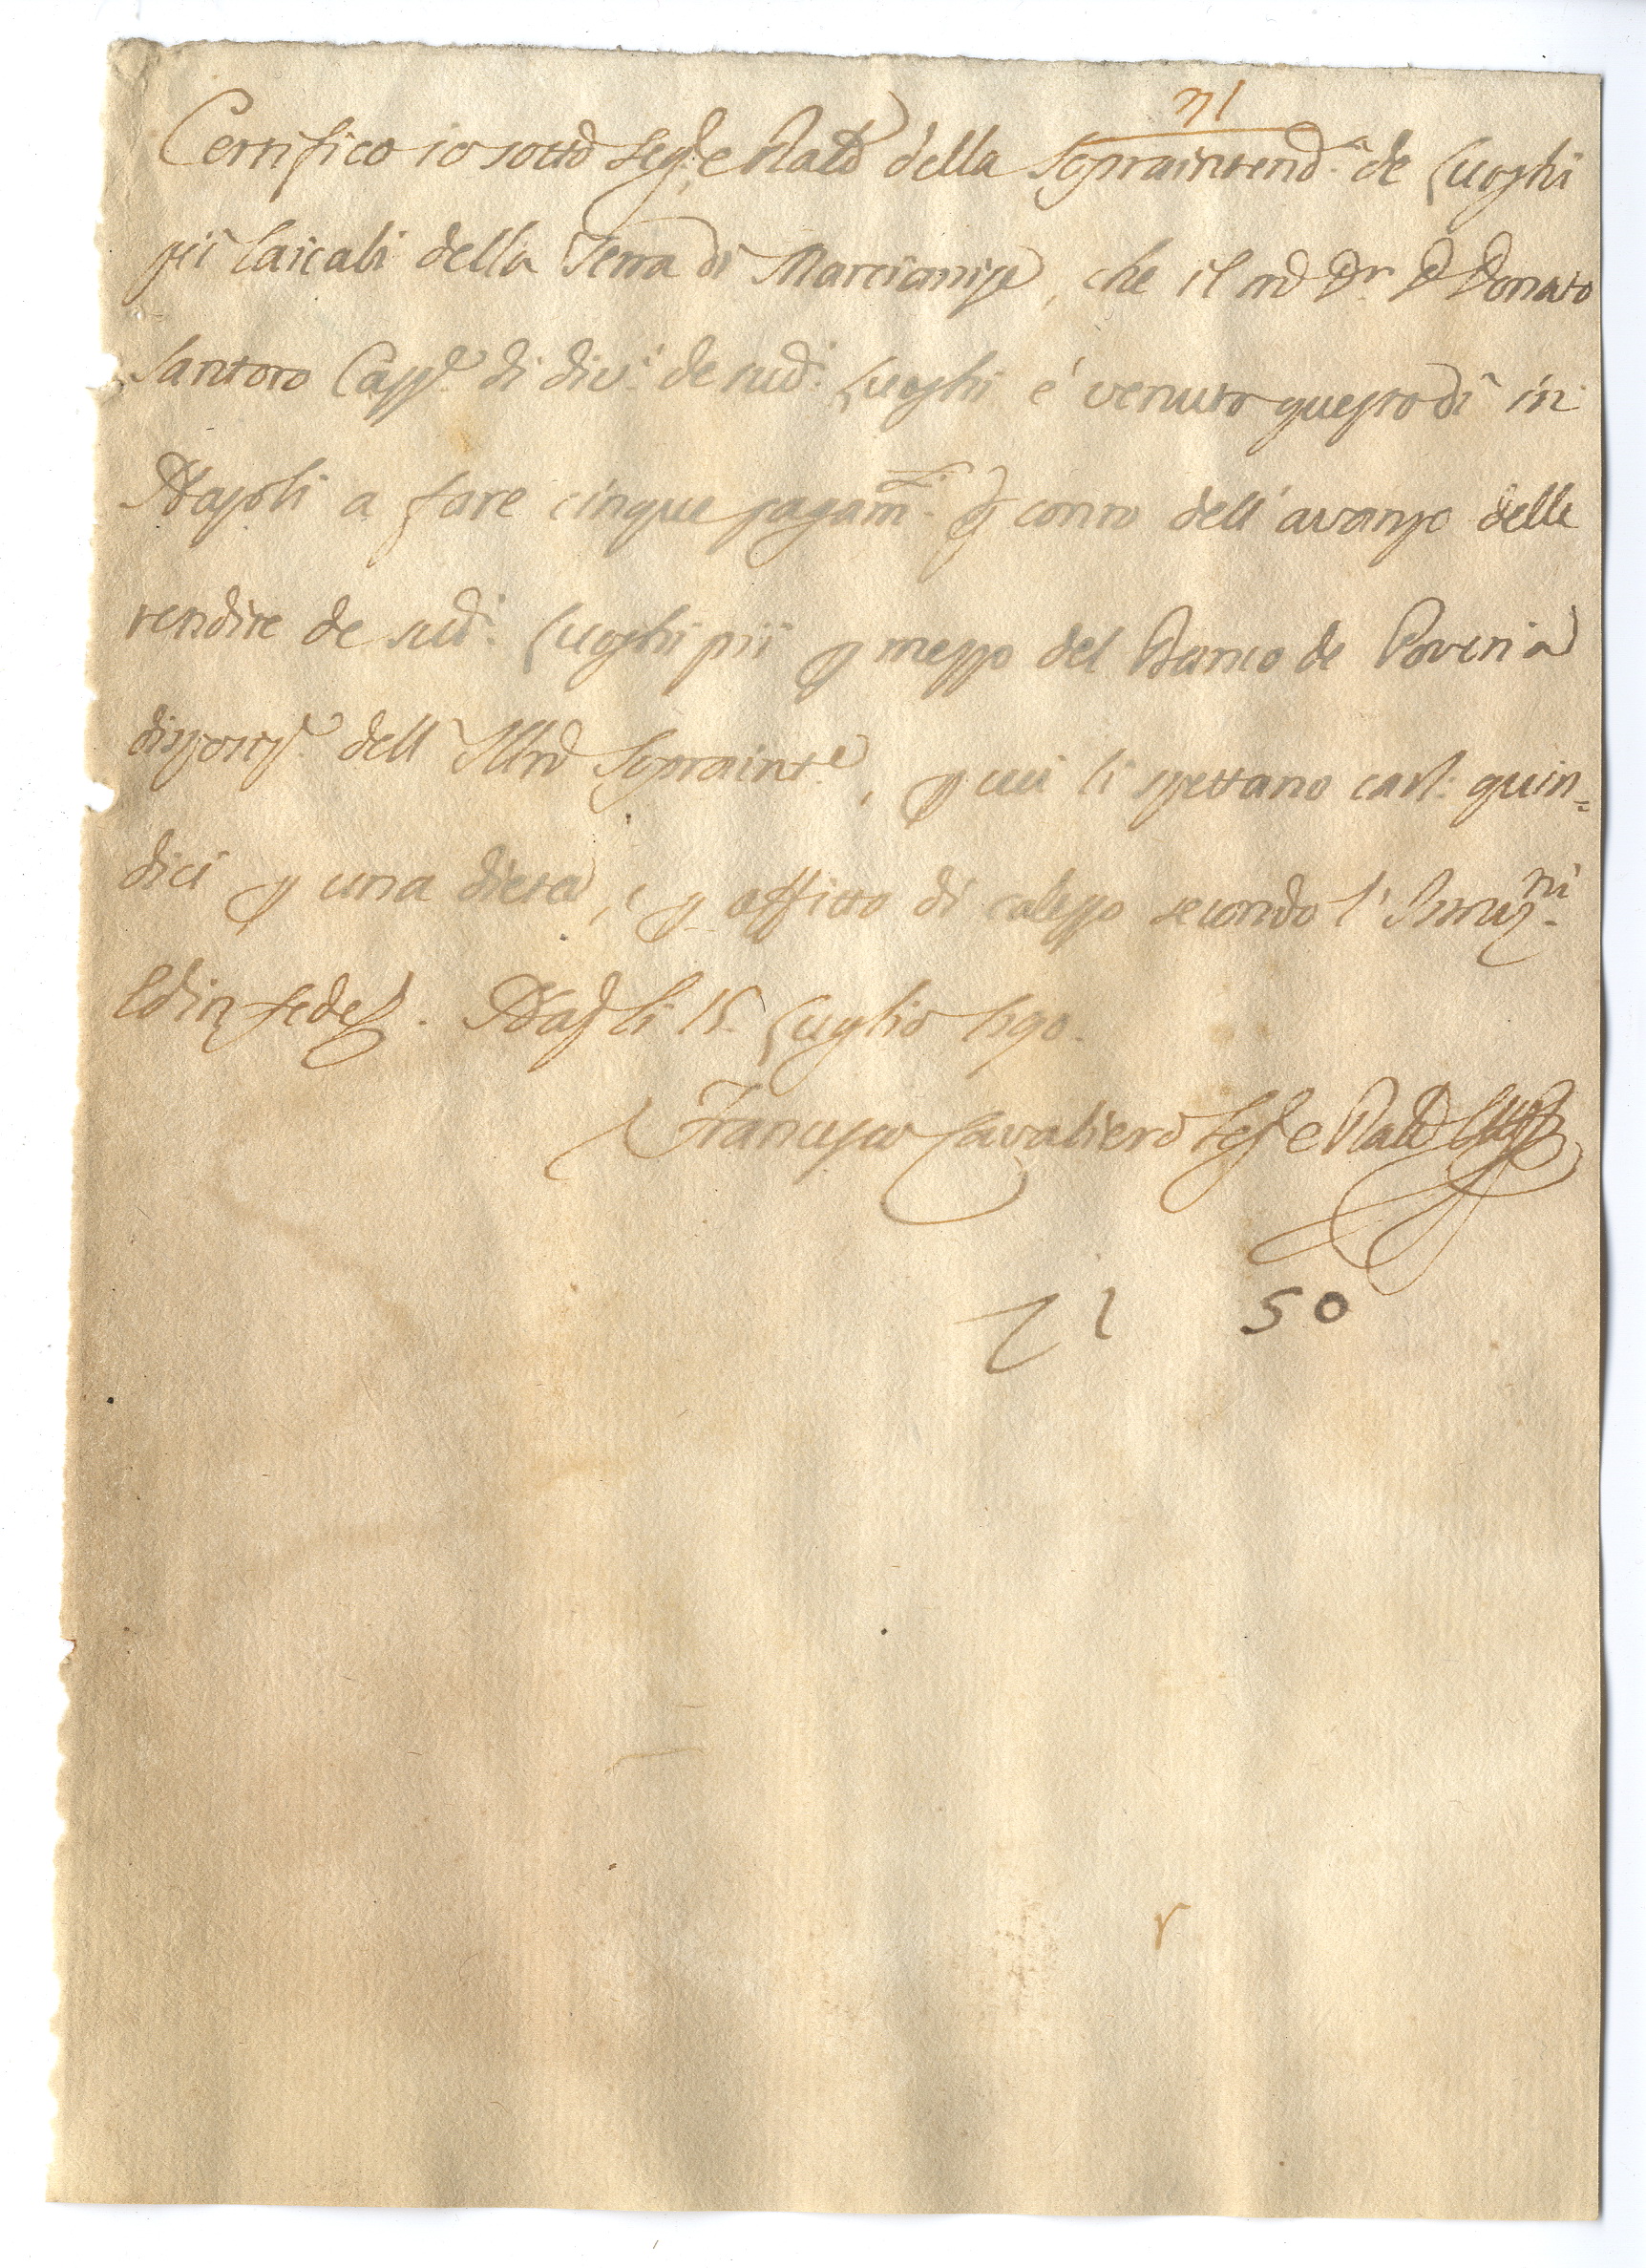 71
Certifico io sottõ Seg:, e Raẽ della Sopraintend.ª de Luoghi
pii laicali della Terra di Marcianise, che il Rd̃ Dr. D. Donato
Santoro Capp.e di div.i de sud.i Luoghi è venuto questo dì in
Napoli a fare cinque pagam.ti p conto dell'avanzo delle
rendite de sud.i Luoghi pii p mezzo del Banco de Poveri a
disposiz.e dell' Illrẽ Sopraint.e, p cui li spettano carl: quin=
dici p una dieta, e p affitto di calesso secondo l'Istruz.ni
Ed in fede. Nap li 15 Luglio 1790.
Francesco Cavaliero Seg e Raẽ
1 50